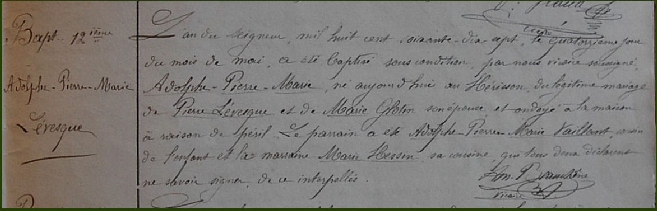 Bapt. 12ième
Adolphe-Pierre-Marie
Lévesque
L'an du Seigneur, mil huit cent soixante-dix-sept, le quatorzième jour
du mois de mai, a été baptisé sous condition, par nous vicaire soussigné,
Adolphe-Pierre-Marie, né aujourd'hui au Hérisson, du légitime mariage
de Pierre Lévesque et de Marie Glotin son épouse et ondoyé à la maison
à raison de péril. Le parrain a été Adolphe-Pierre-Marie Vaillant,
de l'enfant et la marraine Marie Hessin, sa cousine, qui tous deux déclarent
ne savoir signer, de ce interpellés.
Vicaire